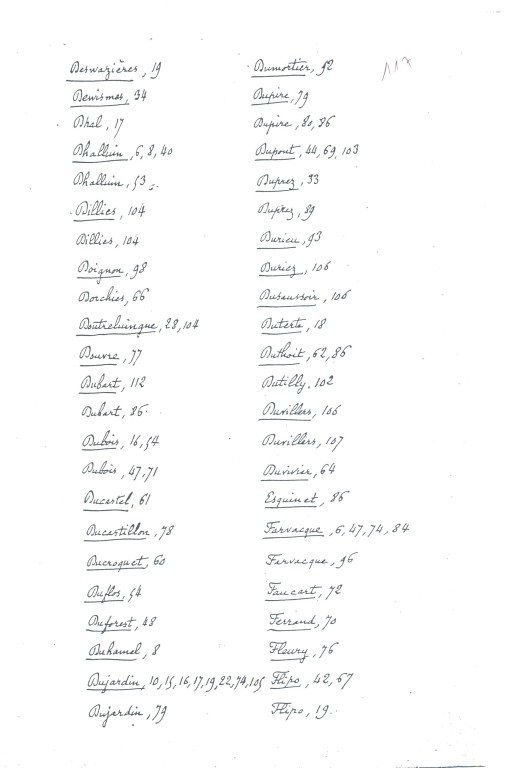 117
Deswazières, 19
Dewismes, 34
Dhal, 17
Dhalluin, 6, 8, 40
Dhalluin, 53
Dillies, 104
Dillies, 104
Doignon, 98
Dorchies, 66
Doutreluingue, 28, 104
Douvre, 77
Dubart, 112
Dubart, 86
Dubois, 16, 54
Dubois, 47, 71
Ducastel, 61
Ducastillon, 78
Ducroquet, 60
Duflos, 54
Duforest, 48
Duhamel, 8
Dujardin, 10, 15, 16, 17, 19, 22, 74, 105
Dujardin, 79
Dumortier, 92
Dupire, 79
Dupire, 80, 86
Dupont, 44, 69, 103
Duprez, 33
Duprez, 89
Durieu, 93
Duriez, 106
Dusaussoir, 106
Duterte, 18
Duthoit, 62, 86
Dutilly, 102
Duvillers, 106
Duvillers, 107
Duvivier, 64
Esquinet, 86
Farvacque, 6, 47, 74, 84
Farvacque, 96
Faucart, 72
Ferrand, 70
Fleury, 76
Flipo, 42, 67
Flipo, 19